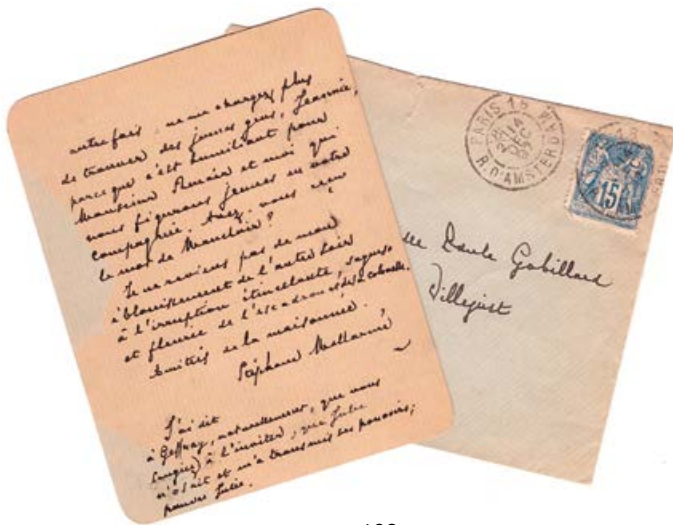 autrefois : ne me chargez plus
de trouver des jeunes gens, Jeannie,
parce que c'est humiliant pour
Monsieur Renoir et moi qui
nous figurons jeunes en votre
compagnie. Avez-vous reçu
le mot de Mauclair ?
Je ne reviens pas de mon
éblouissement de l'autre soir
à l'irruption étincelante, soyeuse
et fleurie de l'escadron et de sa colonelle.
Amitiés de la maisonnée.
Stéphane Mallarmé
J'ai dit
à Geffroy, naturellement, que nous
songions à l'inviter ; que Julie
n'osait et m'a transmis ses pouvoirs ;
pauvre Julie.
PARIS 18
DEC
R. D'AMSTERDAM
15
Paule Gobillard
Villejust